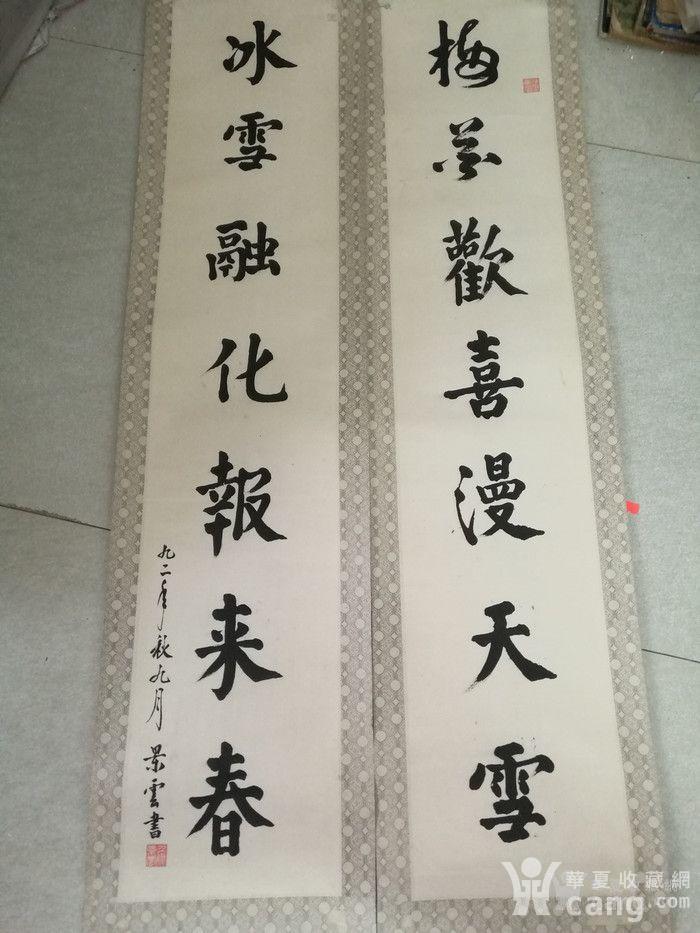 梅花歡喜漫天雪
冰雪融化報来春
九二年秋九月 景雲書
華夏收藏網
cang.com